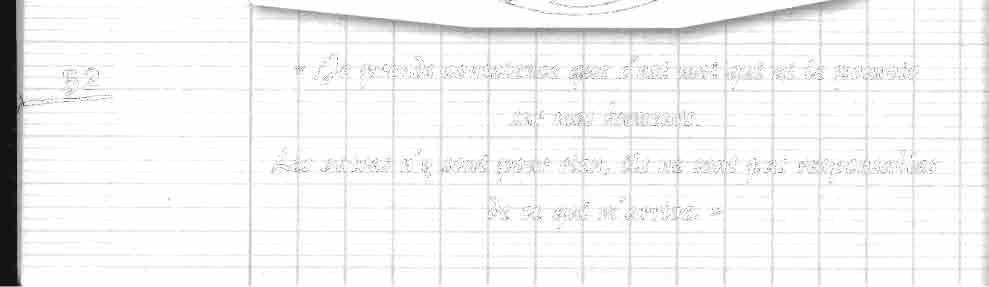 52
« Je prends conscience que c'est moi qui ai le pouvoir
sur mes
Les autres n'y sont pour rien, ils ne sont pas responsables
de ce qui m'arrive. »